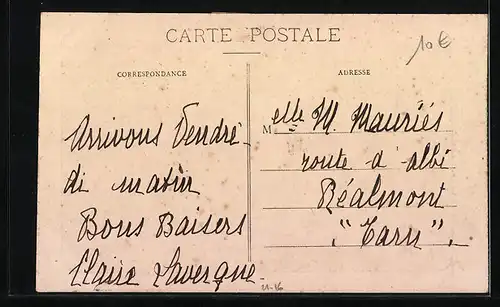 CARTE POSTALE
10€
CORRESPONDANCE
ADRESSE
Arrivons Vendre-
di matin
Bons Baisers
Claire Lavergne
Melle M. Mauriés
route d'albi
Réalmont
"Tarn".